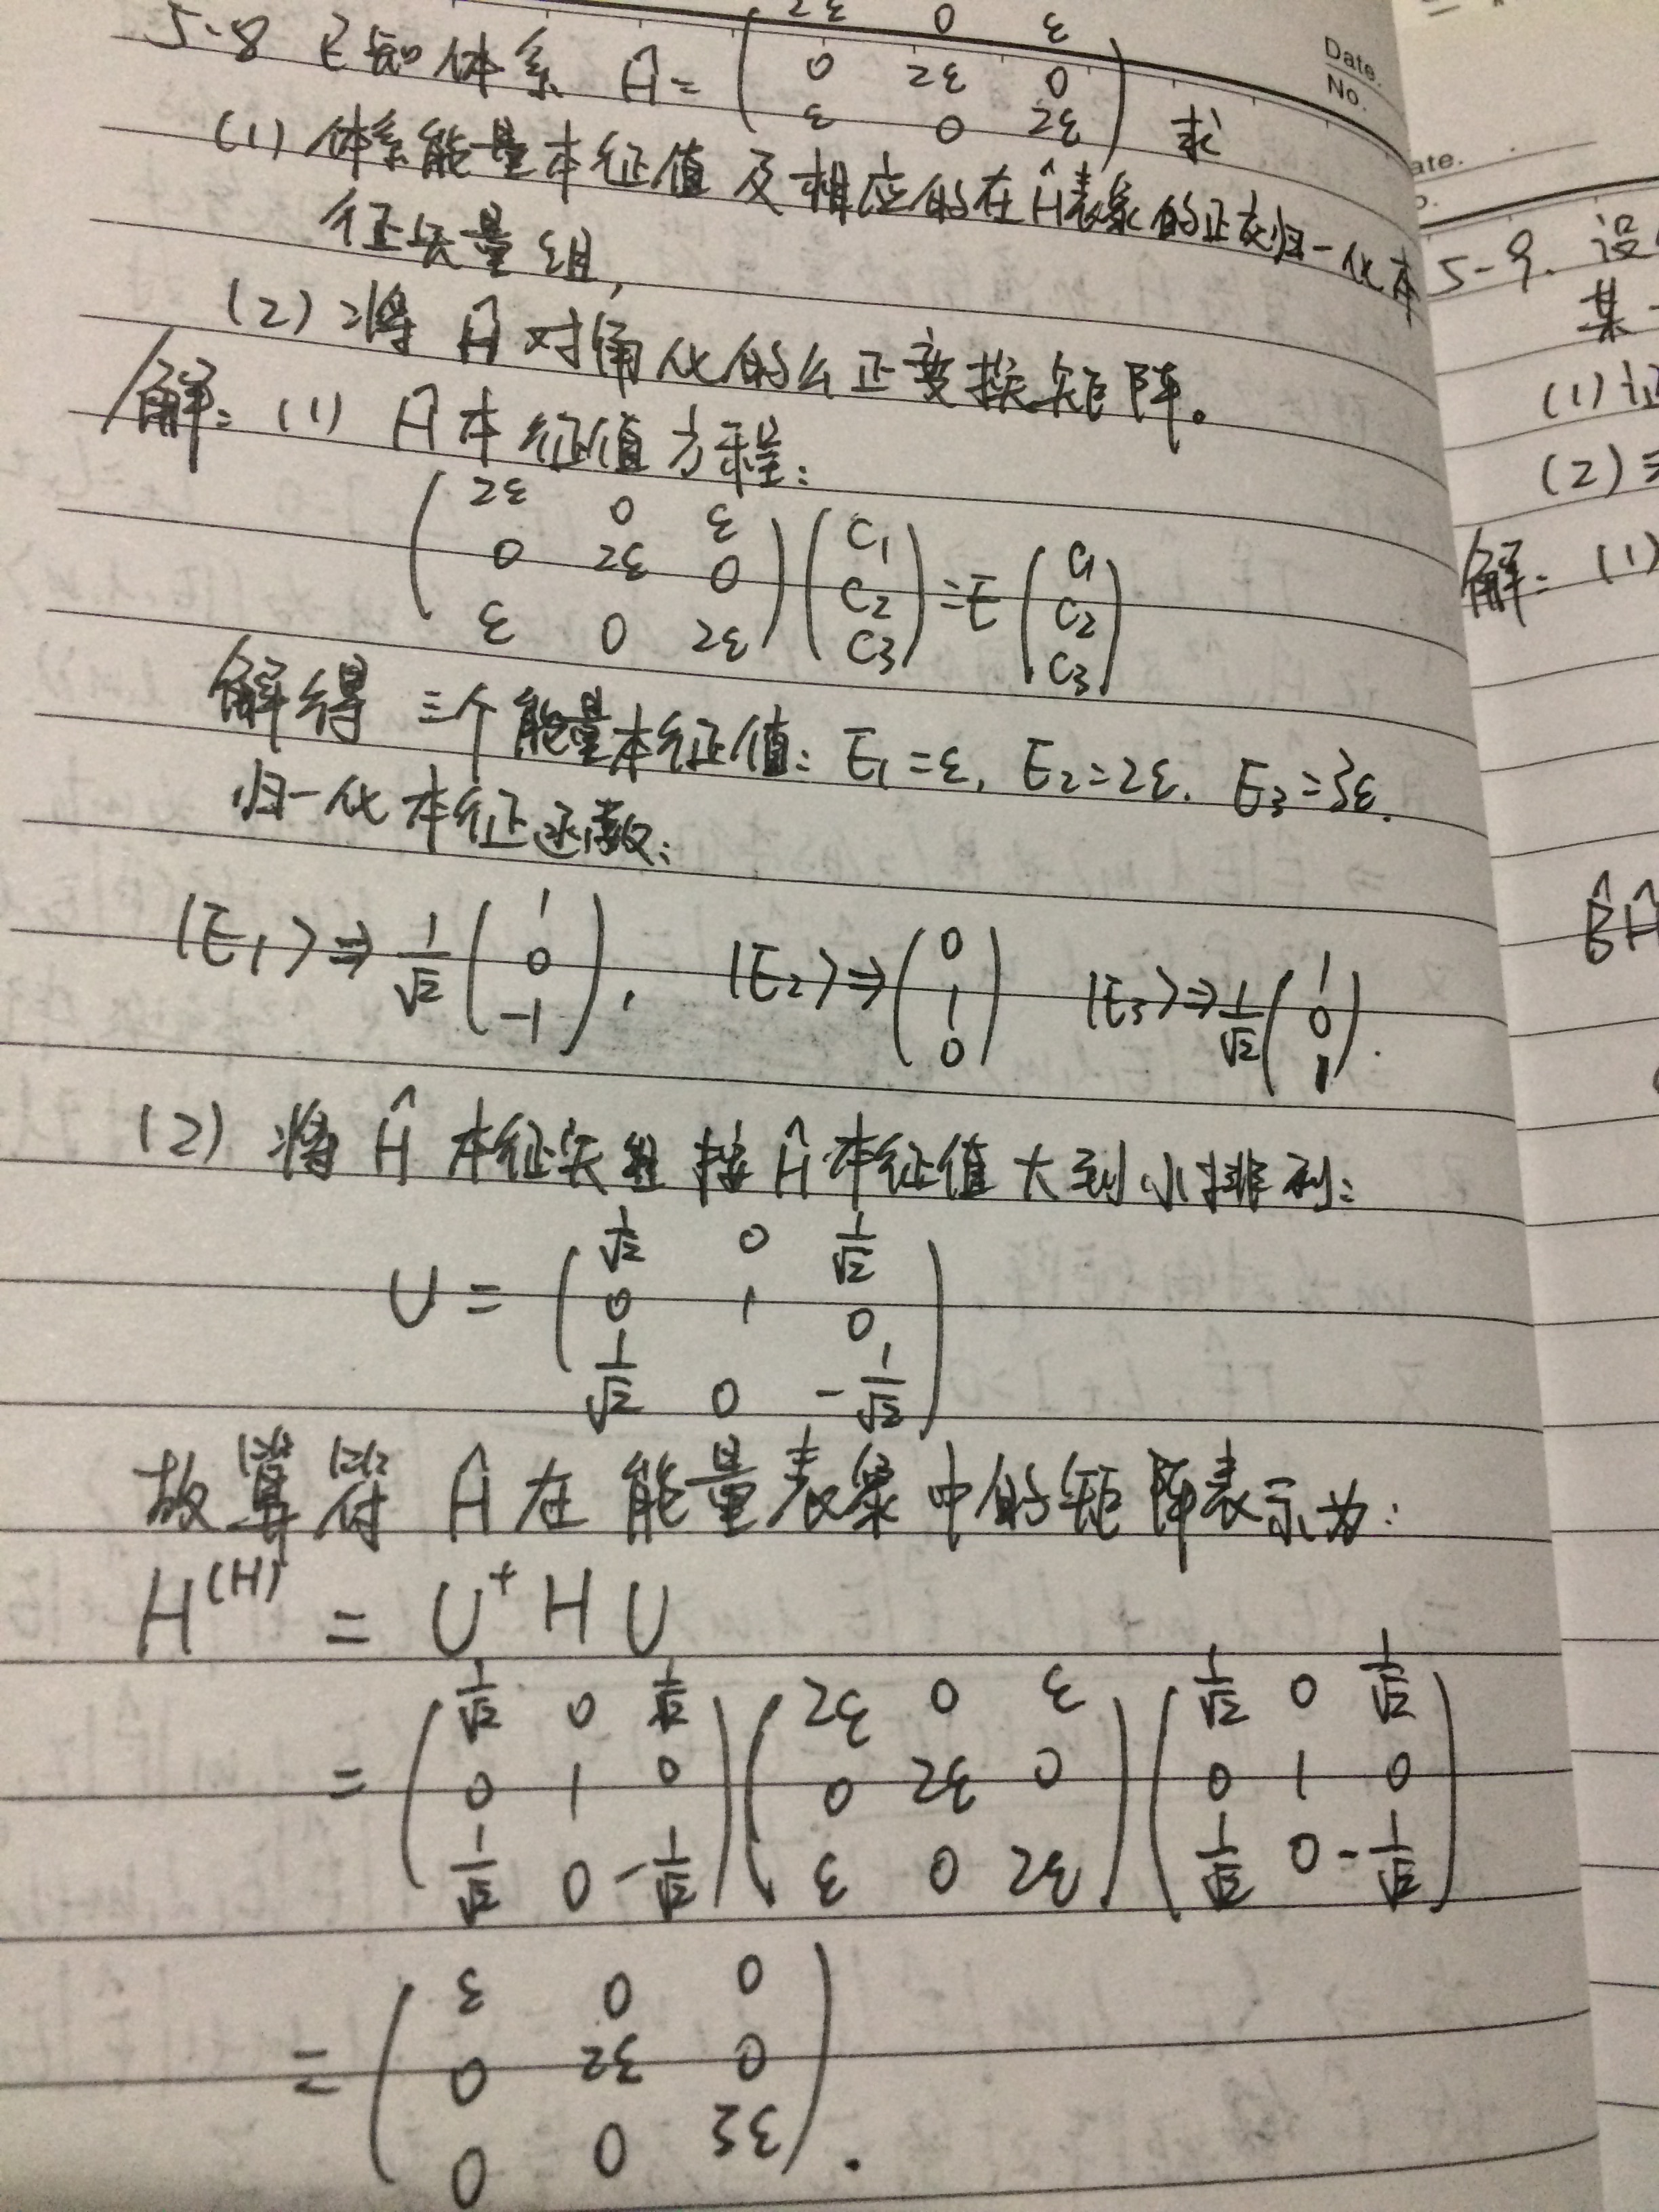 Date.
No.
5-8 已知体系 Ĥ= ( 2ε 0 ε
0 2ε 0
ε 0 2ε ) 求
(1) 体系能量本征值及相应的在Ĥ表象的正交归一化本
征矢量组,
(2) 将 Ĥ 对角化的幺正变换矩阵。
解: (1) Ĥ本征值方程:
( 2ε 0 ε
0 2ε 0
ε 0 2ε ) ( C₁
C₂
C₃ ) = E ( C₁
C₂
C₃ )
解得 三个能量本征值: E₁=ε, E₂=2ε. E₃=3ε.
归一化本征函数:
|E₁> ⇒ 1/√2 ( 1
0
-1 ), |E₂> ⇒ ( 0
1
0 ) |E₃> ⇒ 1/√2 ( 1
0
1 ).
(2) 将 Ĥ 本征矢组 按Ĥ本征值大到小排列:
U = ( 1/√2 0 1/√2
0 1 0
1/√2 0 -1/√2 )
故算符 Ĥ 在能量表象中的矩阵表示为:
H^(H) = U⁺ H U
= ( 1/√2 0 1/√2
0 1 0
1/√2 0 -1/√2 ) ( 2ε 0 ε
0 2ε 0
ε 0 2ε ) ( 1/√2 0 1/√2
0 1 0
1/√2 0 -1/√2 )
= ( ε 0 0
0 2ε 0
0 0 3ε ).
ate.
5-9. 设
某
(1)
(2)
解: (1)
B̂Ĥ